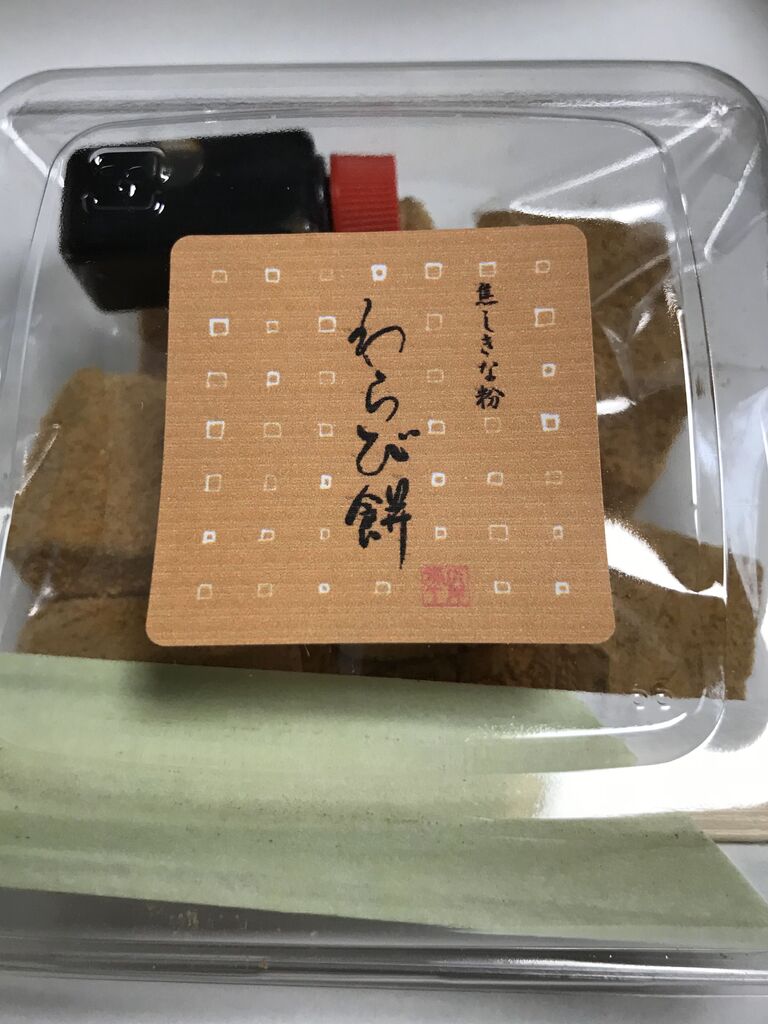 焦しきな粉
わらび餅